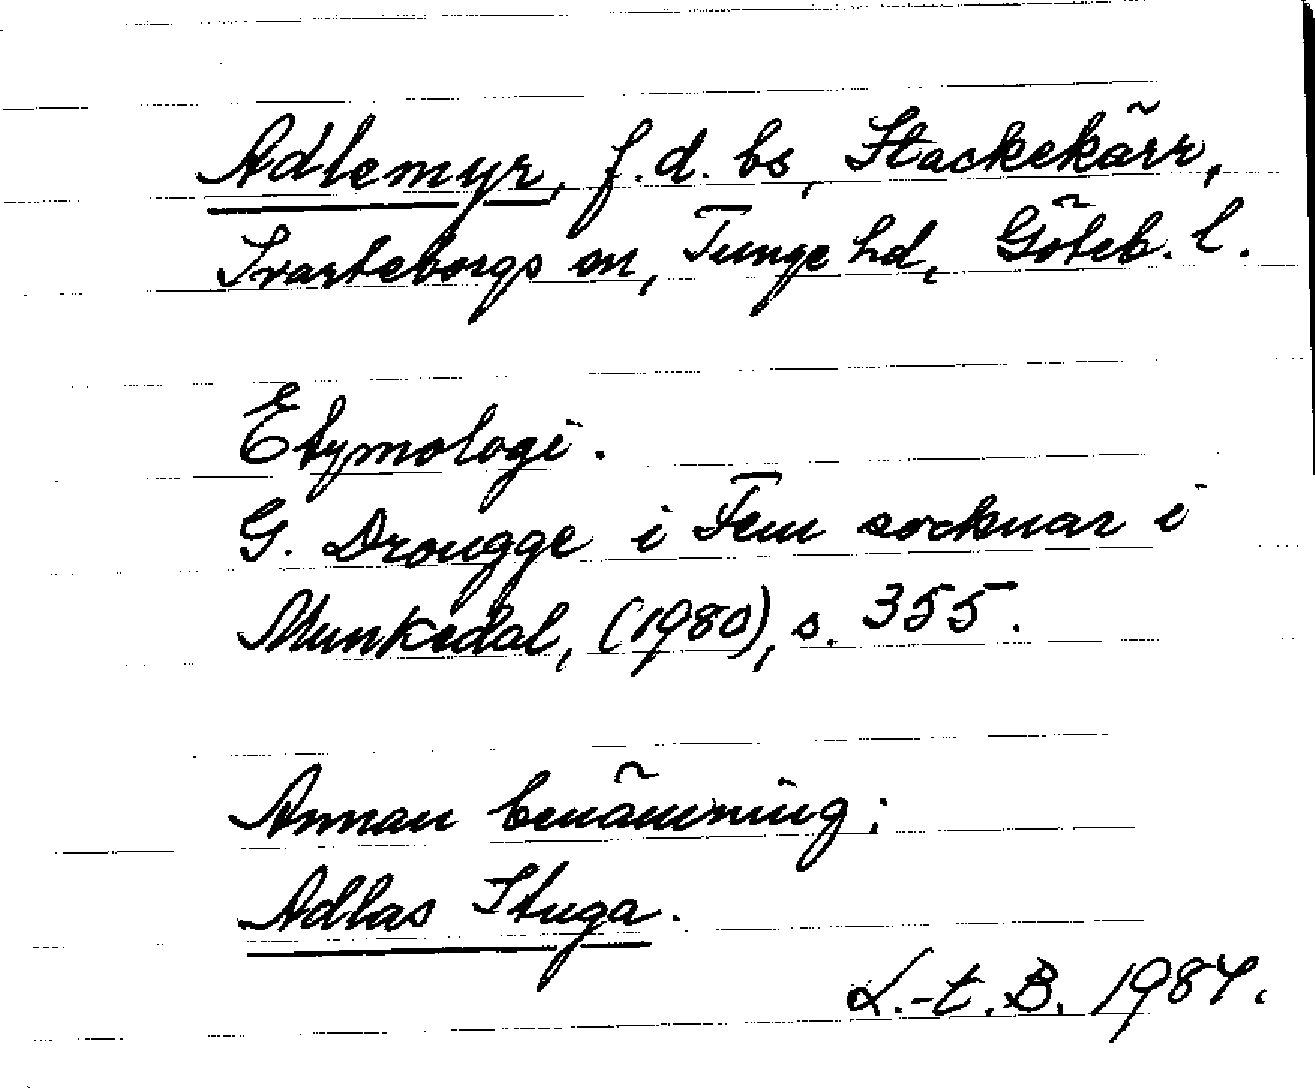 Adlemyr, f.d. bs, Stackekärr,
Svarteborgs sn, Tunge hd, Göteb. l.
Etymologi.
G. Drougge i Fem socknar i
Munkedal, (1980), s. 355.
Annan benämning:
Adlas Stuga.
L.-t. B. 1984.